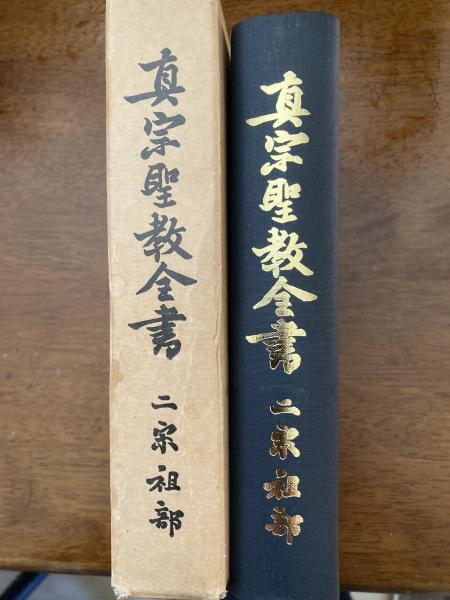 真宗聖教全書 二 宗祖部
真宗聖教全書 二 宗祖部